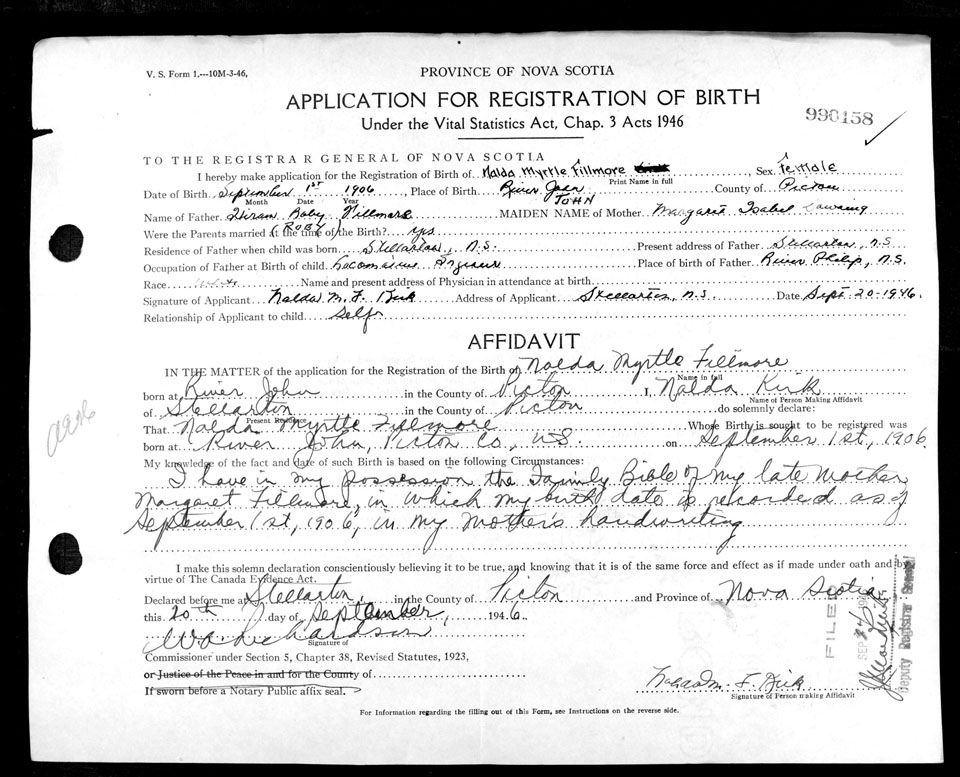 V. S. Form 1.---10M-3-46,
PROVINCE OF NOVA SCOTIA
APPLICATION FOR REGISTRATION OF BIRTH
990158
Under the Vital Statistics Act, Chap. 3 Acts 1946
TO THE REGISTRAR GENERAL OF NOVA SCOTIA
I hereby make application for the Registration of Birth of Nalda Myrtle Fillmore Sex Female
Print Name in full
Date of Birth September 1st 1906 Place of Birth River John County of Pictou
Month Date Year JOHN
Name of Father Hiram Roby Fillmore MAIDEN NAME of Mother Margaret Isabel
(ROBY)
Were the Parents married at the time of the Birth? yes
Residence of Father when child was born Stellarton, N.S. Present address of Father Stellarton, N.S
Occupation of Father at Birth of child Locomotive Engineer Place of birth of Father River Philip, N.S.
Race White Name and present address of Physician in attendance at birth
Signature of Applicant Nalda M. F. Kirk Address of Applicant Stellarton, N.S. Date Sept. 20-1946.
Relationship of Applicant to child Self
AFFIDAVIT
IN THE MATTER of the application for the Registration of the Birth of Nalda Myrtle Fillmore
Name in full
born at River John in the County of Pictou I, Nalda Kirk
Name of Person Making Affidavit
of Stellarton in the County of Pictou do solemnly declare:
Present Residence
That Nalda Myrtle Fillmore Whose Birth is sought to be registered was
born at River John, Pictou Co., N.S. on September 1st, 1906.
My knowledge of the fact and date of such Birth is based on the following Circumstances:
I have in my possession the Family Bible of my late Mother
Margaret Fillmore, in which my birth date is recorded as of
September 1st, 1906, in my Mother's handwriting
I make this solemn declaration conscientiously believing it to be true, and knowing that it is of the same force and effect as if made under oath and by
virtue of The Canada Evidence Act.
Declared before me at Stellarton, in the County of Pictou and Province of Nova Scotia
this 20th day of September, 1946
Richardson
Signature of
Commissioner under Section 5, Chapter 38, Revised Statutes, 1923,
or Justice of the Peace in and for the County of
If sworn before a Notary Public affix seal.
Nalda M. F. Kirk
Signature of Person making Affidavit
For Information regarding the filling out of this Form, see Instructions on the reverse side.
FILED
SEP 24
Deputy Registrar General